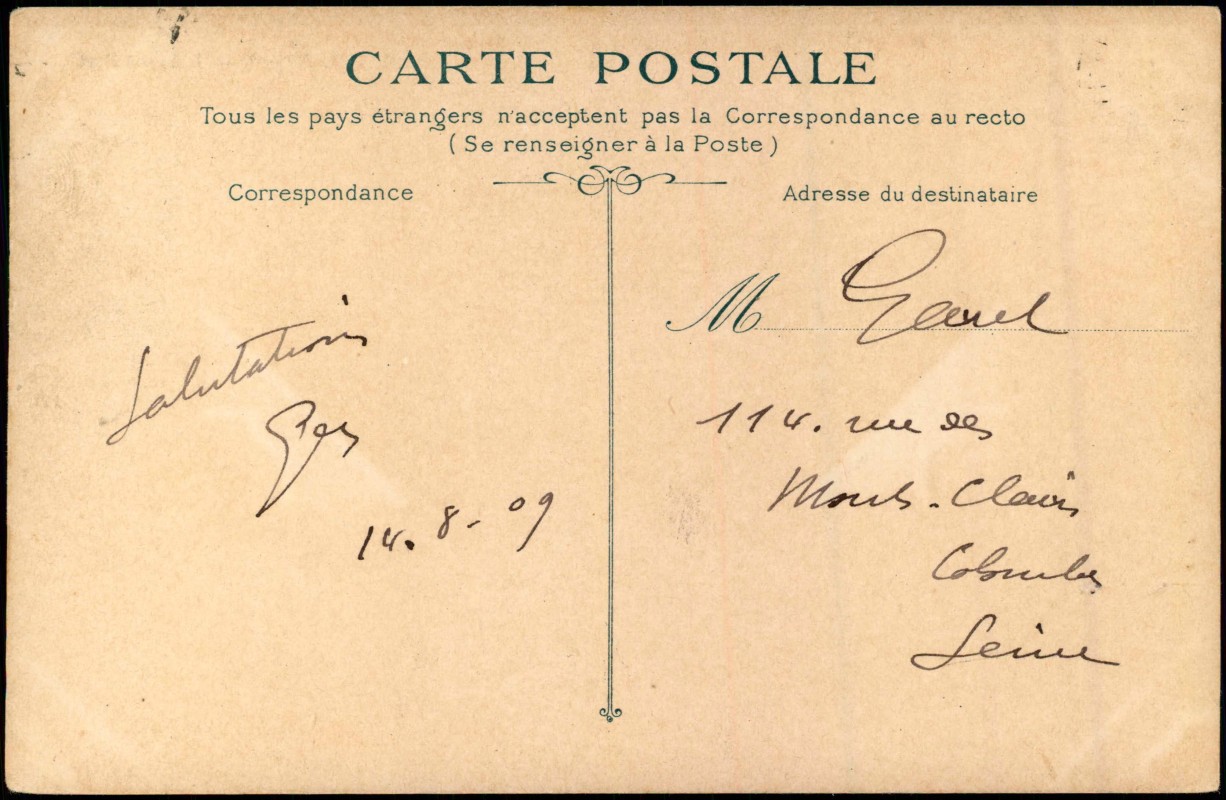 CARTE POSTALE
Tous les pays étrangers n'acceptent pas la Correspondance au recto
(Se renseigner à la Poste)
Correspondance
Adresse du destinataire
Salutations
14. 8 - 09
M Garel
114. rue des
Monts-Clairs
Colombes
Seine